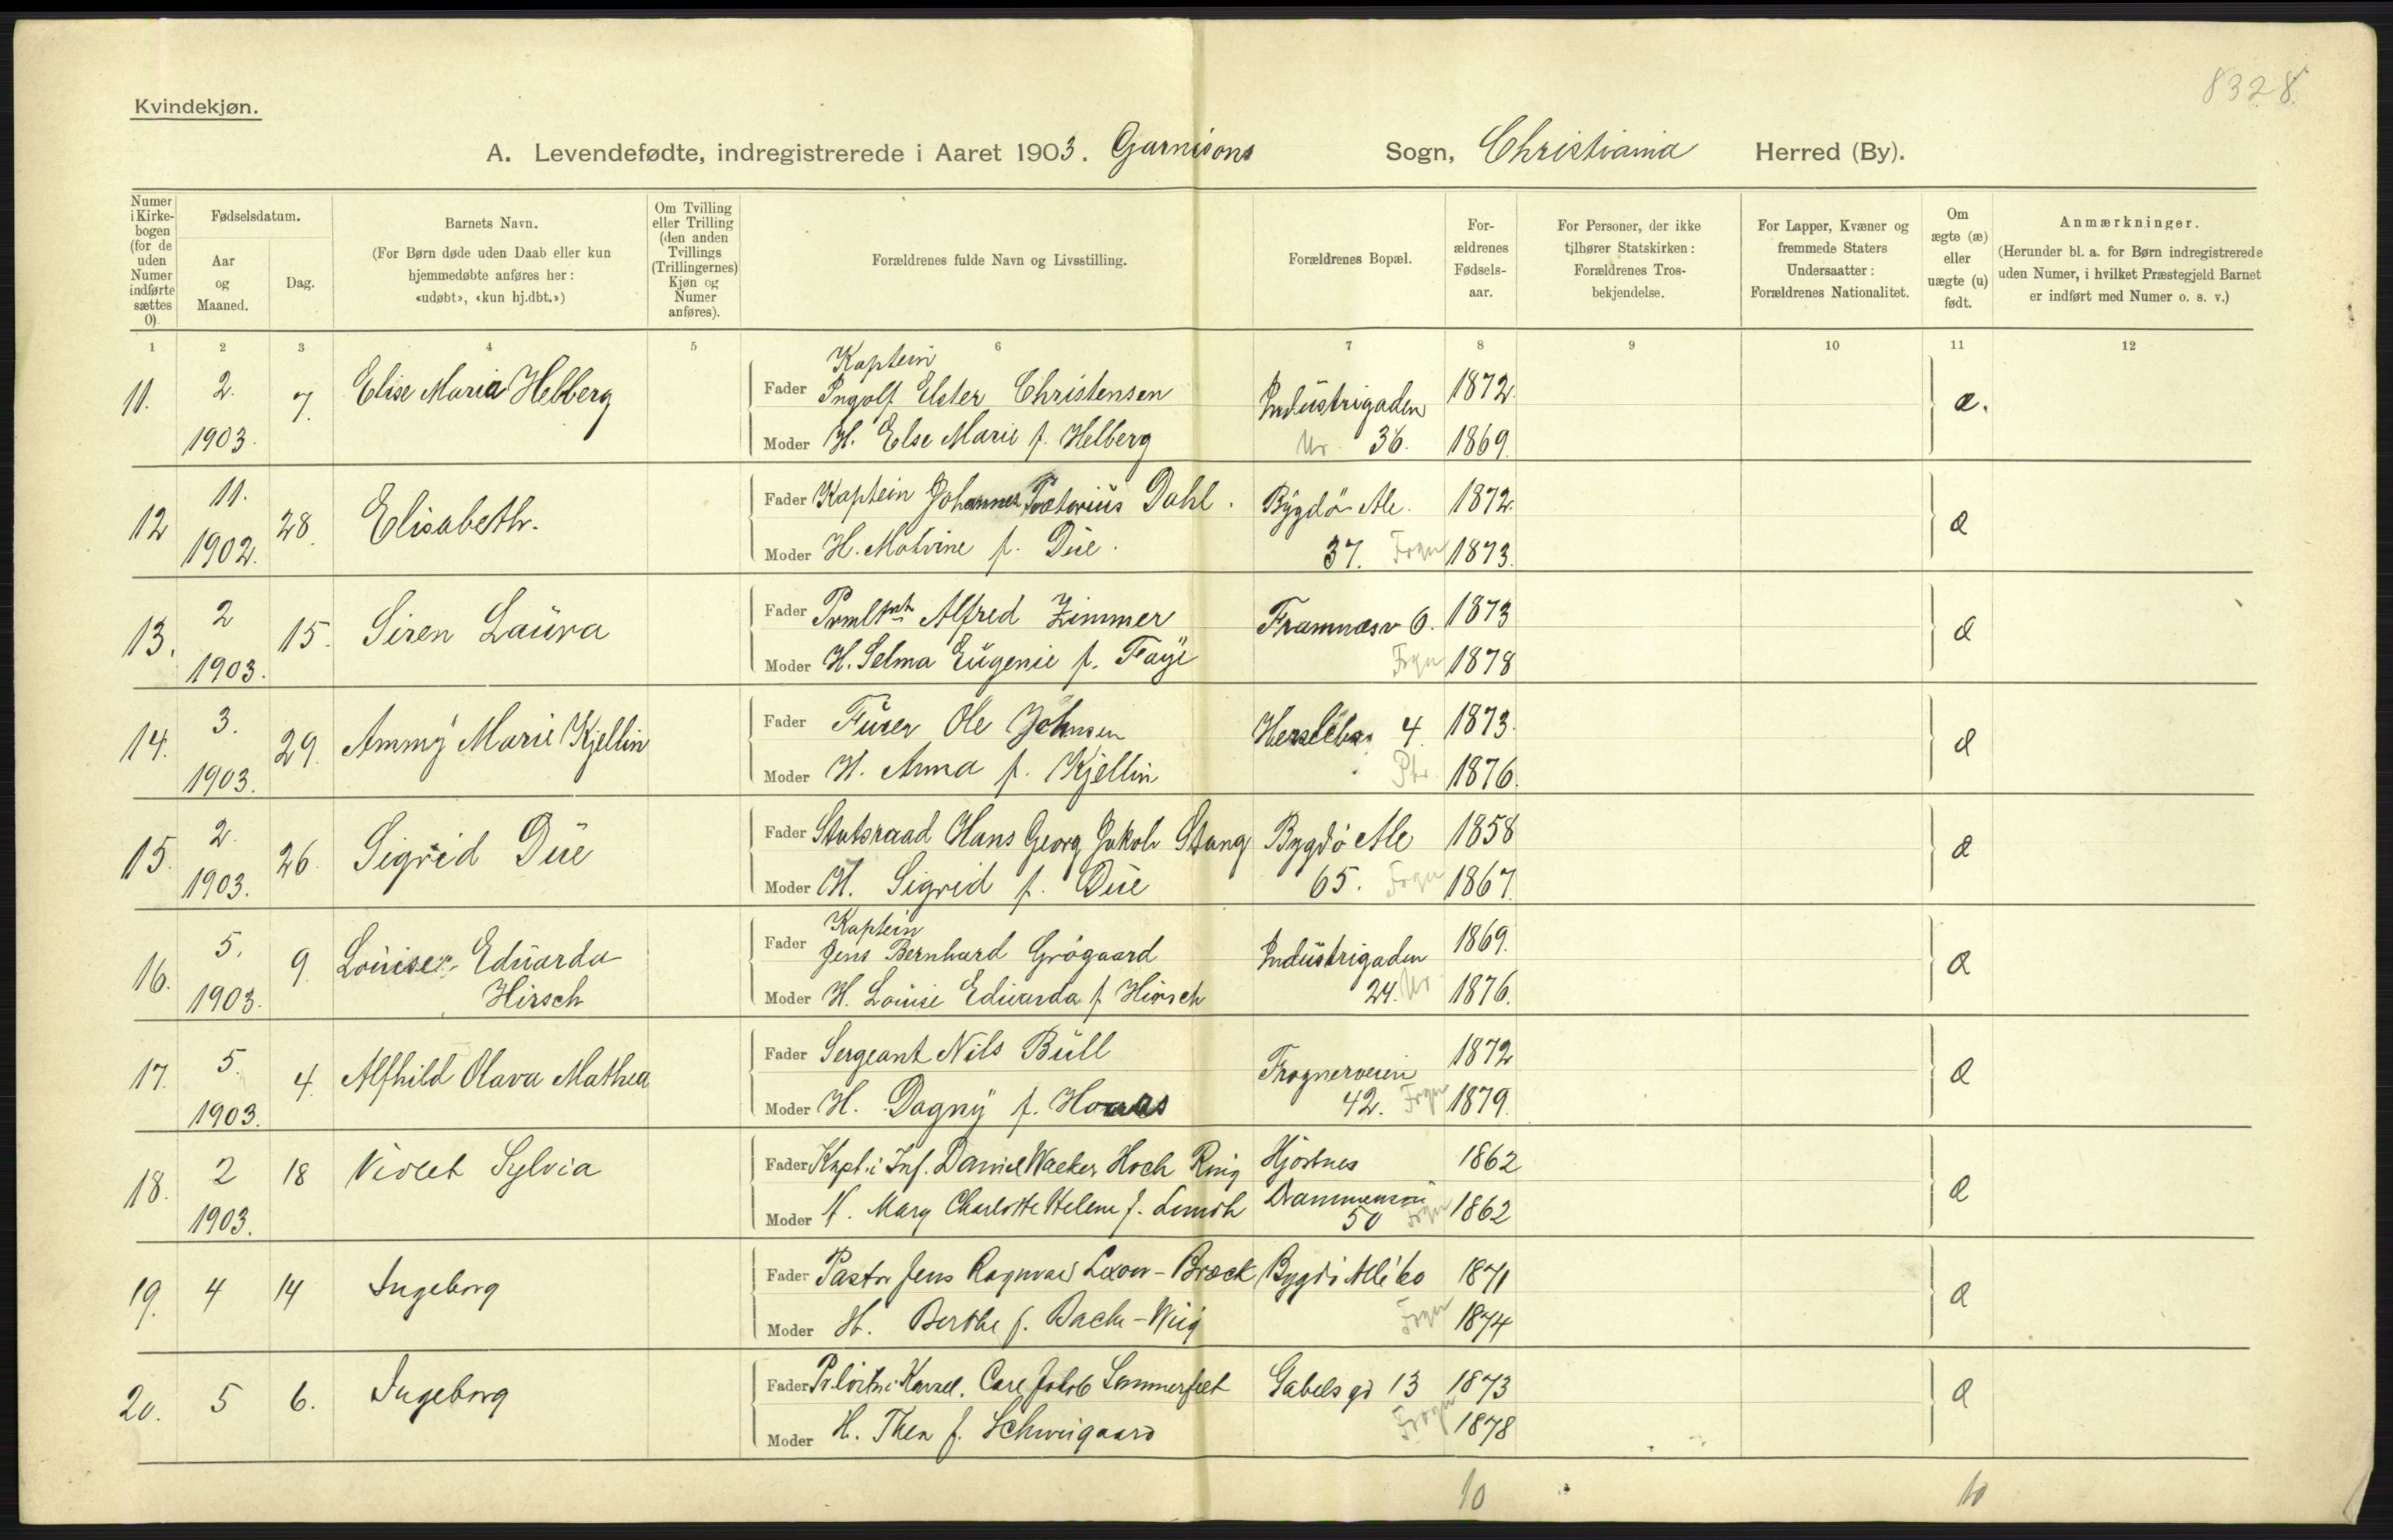 8328.
Kvindekjøn.
A. Levendefødte, indregistrerede i Aaret 1903. Garnisons Sogn, Christiania Herred (By).
Numer i Kirke- bogen (for de uden Numer indførte sættes 0).
Fødselsdatum.
Aar og Maaned.
Dag.
Barnets Navn.
(For Børn døde uden Daab eller kun
hjemmedøbte anføres her:
«udøbt», «kun hj.dbt.»)
Om Tvilling eller Trilling (den anden Tvillings (Trillingernes) Kjøn og Numer anføres).
Forældrenes fulde Navn og Livsstilling.
Forældrenes Bopæl.
For- ældrenes Fødsels- aar.
For Personer, der ikke
tilhører Statskirken:
Forældrenes Tros-
bekjendelse.
For Lapper, Kvæner og
fremmede Staters
Undersaatter:
Forældrenes Nationalitet.
Om ægte (æ) eller uægte (u) født.
Anmærkninger.
(Herunder bl. a. for Børn indregistrerede
uden Numer, i hvilket Præstegjeld Barnet
er indført med Numer o. s. v.)
1 2 3 4 5 6 7 8 9 10 11 12
11. 2. 1903. 7. Elise Maria Helberg
Kaptein
Fader Ingolf Elster Christensen Industrigaden 1872. æ.
Moder H. Else Marie f. Helberg Ur. 36. 1869.
12 11. 1902. 28. Elisabeth.
Fader Kaptein Johannes Prætorius Dahl. Bygdø Ale. 1872. æ
Moder H. Malvine f. Düe. 37. Frgn 1873.
13. 2 1903. 15. Siren Laura
Fader Prmltnt Alfred Zimmer Framnæsv 6. 1873 æ
Moder H. Selma Eugenie f. Faye Frgn 1878
14. 3. 1903. 29. Ammy Marie Kjellin
Fader Furer Ole Johnsen Herslebs 4. 1873. æ
Moder H. Anna f. Kjellin Ptr. 1876.
15. 2. 1903. 26. Sigrid Düe
Fader Statsraad Hans Georg Jakob Stang Bygdø Ale 1858 æ
Moder H. Sigrid f. Düe 65. Frgn 1867.
16. 5. 1903. 9. Louise Eduarda
Hirsch
Kaptein
Fader Jens Bernhard Grøgaard Industrigaden 1869. æ
Moder H. Louise Eduarda f. Hirsch 24. Ur 1876.
17. 5. 1903. 4. Alfhild Olava Mathea
Fader Sergeant Nils Bull Frognerveien 1872 æ
Moder H. Dagny f. Haraas 42. Frgn 1879.
18. 2 1903. 18 Violet Sylvia
Fader Kapt. i Inf. Daniel Wacker Hoch Ring Hjørtnes 1862 æ
Moder H. Mary Charlotte Helene f. Lundh Drammensvei 50 Frgn 1862
19. 4 14 Ingeborg
Fader Pastor Jens Ragnvald Lexow-Bræck Bygdø Alle 60 1871 æ
Moder H. Berthe f. Bache-Wiig Frgn 1874
20. 5 6. Ingeborg
Fader Prløitn i Kaval. Carl Jakob Sommerfelt Gabels gd 13 1873 æ
Moder H. Thea f. Schweigaard Frogn 1878
10 10